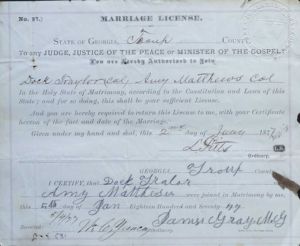 No. 27.) MARRIAGE LICENSE.
STATE OF GEORGIA, Troup COUNTY.
To any JUDGE, JUSTICE OF THE PEACE or MINISTER OF THE GOSPEL:
You are Hereby Authorized to Join
Dock Traylor Col Amy Matthews Col
In the Holy State of Matrimony, according to the Constitution and Laws of this
State; and for so doing, this shall be your sufficient License.
And you are hereby required to return this License to me, with your Certificate
hereon of the fact and date of the Marriage.
Given under my hand and seal, this 2nd day of Jany 187
Pitts
Ordinary.
GEORGIA, Troup County
I CERTIFY, that Dock Tralor
Amy Matthews were joined in Matrimony by me,
this day of Jan Eighteen Hundred and Seventy
James Gray M G
Recorded: